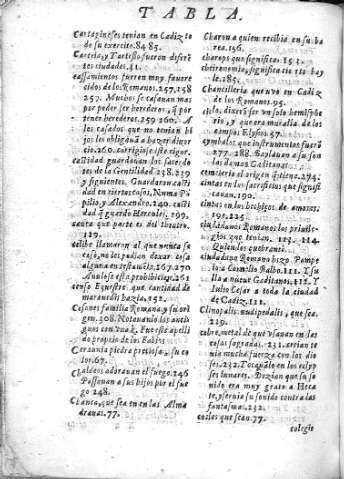 TABLA.
Cartagineses tenian en Cadiz to
do su exercito. 84. 85.
Carteia, y Tartesso fueron difere
tes ciudades. 41.
cassamientos fueron muy favore
cidos de los Romanos. 257. 258
257. Muchos se casauan mas
por poder ser herederos, q̃ por
tener herederos. 259. 260. A
los casados que no tenian hi
jos les obligauã a hazer diuor
cio. 260. corrigiose este rigor.
castidad guardauan los sacerdo
tes de la Gentilidad. 238. 239
y siguientes. Guardaron casti
dad en ciertos casos, Numa Põ
pilio, y Alexandro. 240. casti
dad q̃ guardò Hercules. 299.
cauea que parte es del teatro.
119.
celibe llamaron al que nunca se
casò, no les podian dexar cosa
alguna en testamẽto. 267. 270
Anulose esta prohibicion. 261
censo Equestre que cantidad de
marauedis hazia. 152.
Cesones familia Romana, y su ori
gen. 308. Notauanlo los anti
guos con vna k. Fue este apelli
do proprio de los Fabios
Ceraunia piedra preciosa, su co
lor. 67.
Chaldeos adorauan el fuego. 246
Passauan a sus hijos por el fue
go 248.
Chanca, que sea en las Alma
drauas. 77.
Charon a quien recibia en su ba
rca. 196.
charops que significa. 151.
cheironomia, significa cierto bay
le. 185.
Chancilleria que uvo en Cadiz
de los Romanos. 95.
cielo, dizese ser vn solo hemisphe
rio, y que era muralla de los
campos Elysios. 57.
cymbalos que instrumentos fuerõ
277. 288. Baylauan a su son
las damas Gaditanas.
cementerio el origen q̃ tiene. 274.
cintas en los sacrificios que signifi
cauan. 190.
cintas en los hechizos de amores.
191. 225.
ciudadanos Romanos los priuile
gios que tenian. 113. 114.
Quien los quebrantò.
ciudadano Romano hizo Pompe
io a Cornelio Balbo. 111. Y Su
lla a nueue Gaditanos. 112. Y
Iulio Cesar a toda la ciudad
de Cadiz. 111.
Clinopalis: nudipedalis, que sea.
219.
cobre, metal de que vsauan en las
cosas sagradas. 231. creian te
nia mucha fuerza con los dio
ses. 232. Tocauãlo en los eclyp
ses lunares. Dezian que su so
nido era muy grato a Heca
te, y seruia su sonido contra las
fantasmas. 232.
cocles que sean. 77.
colegio